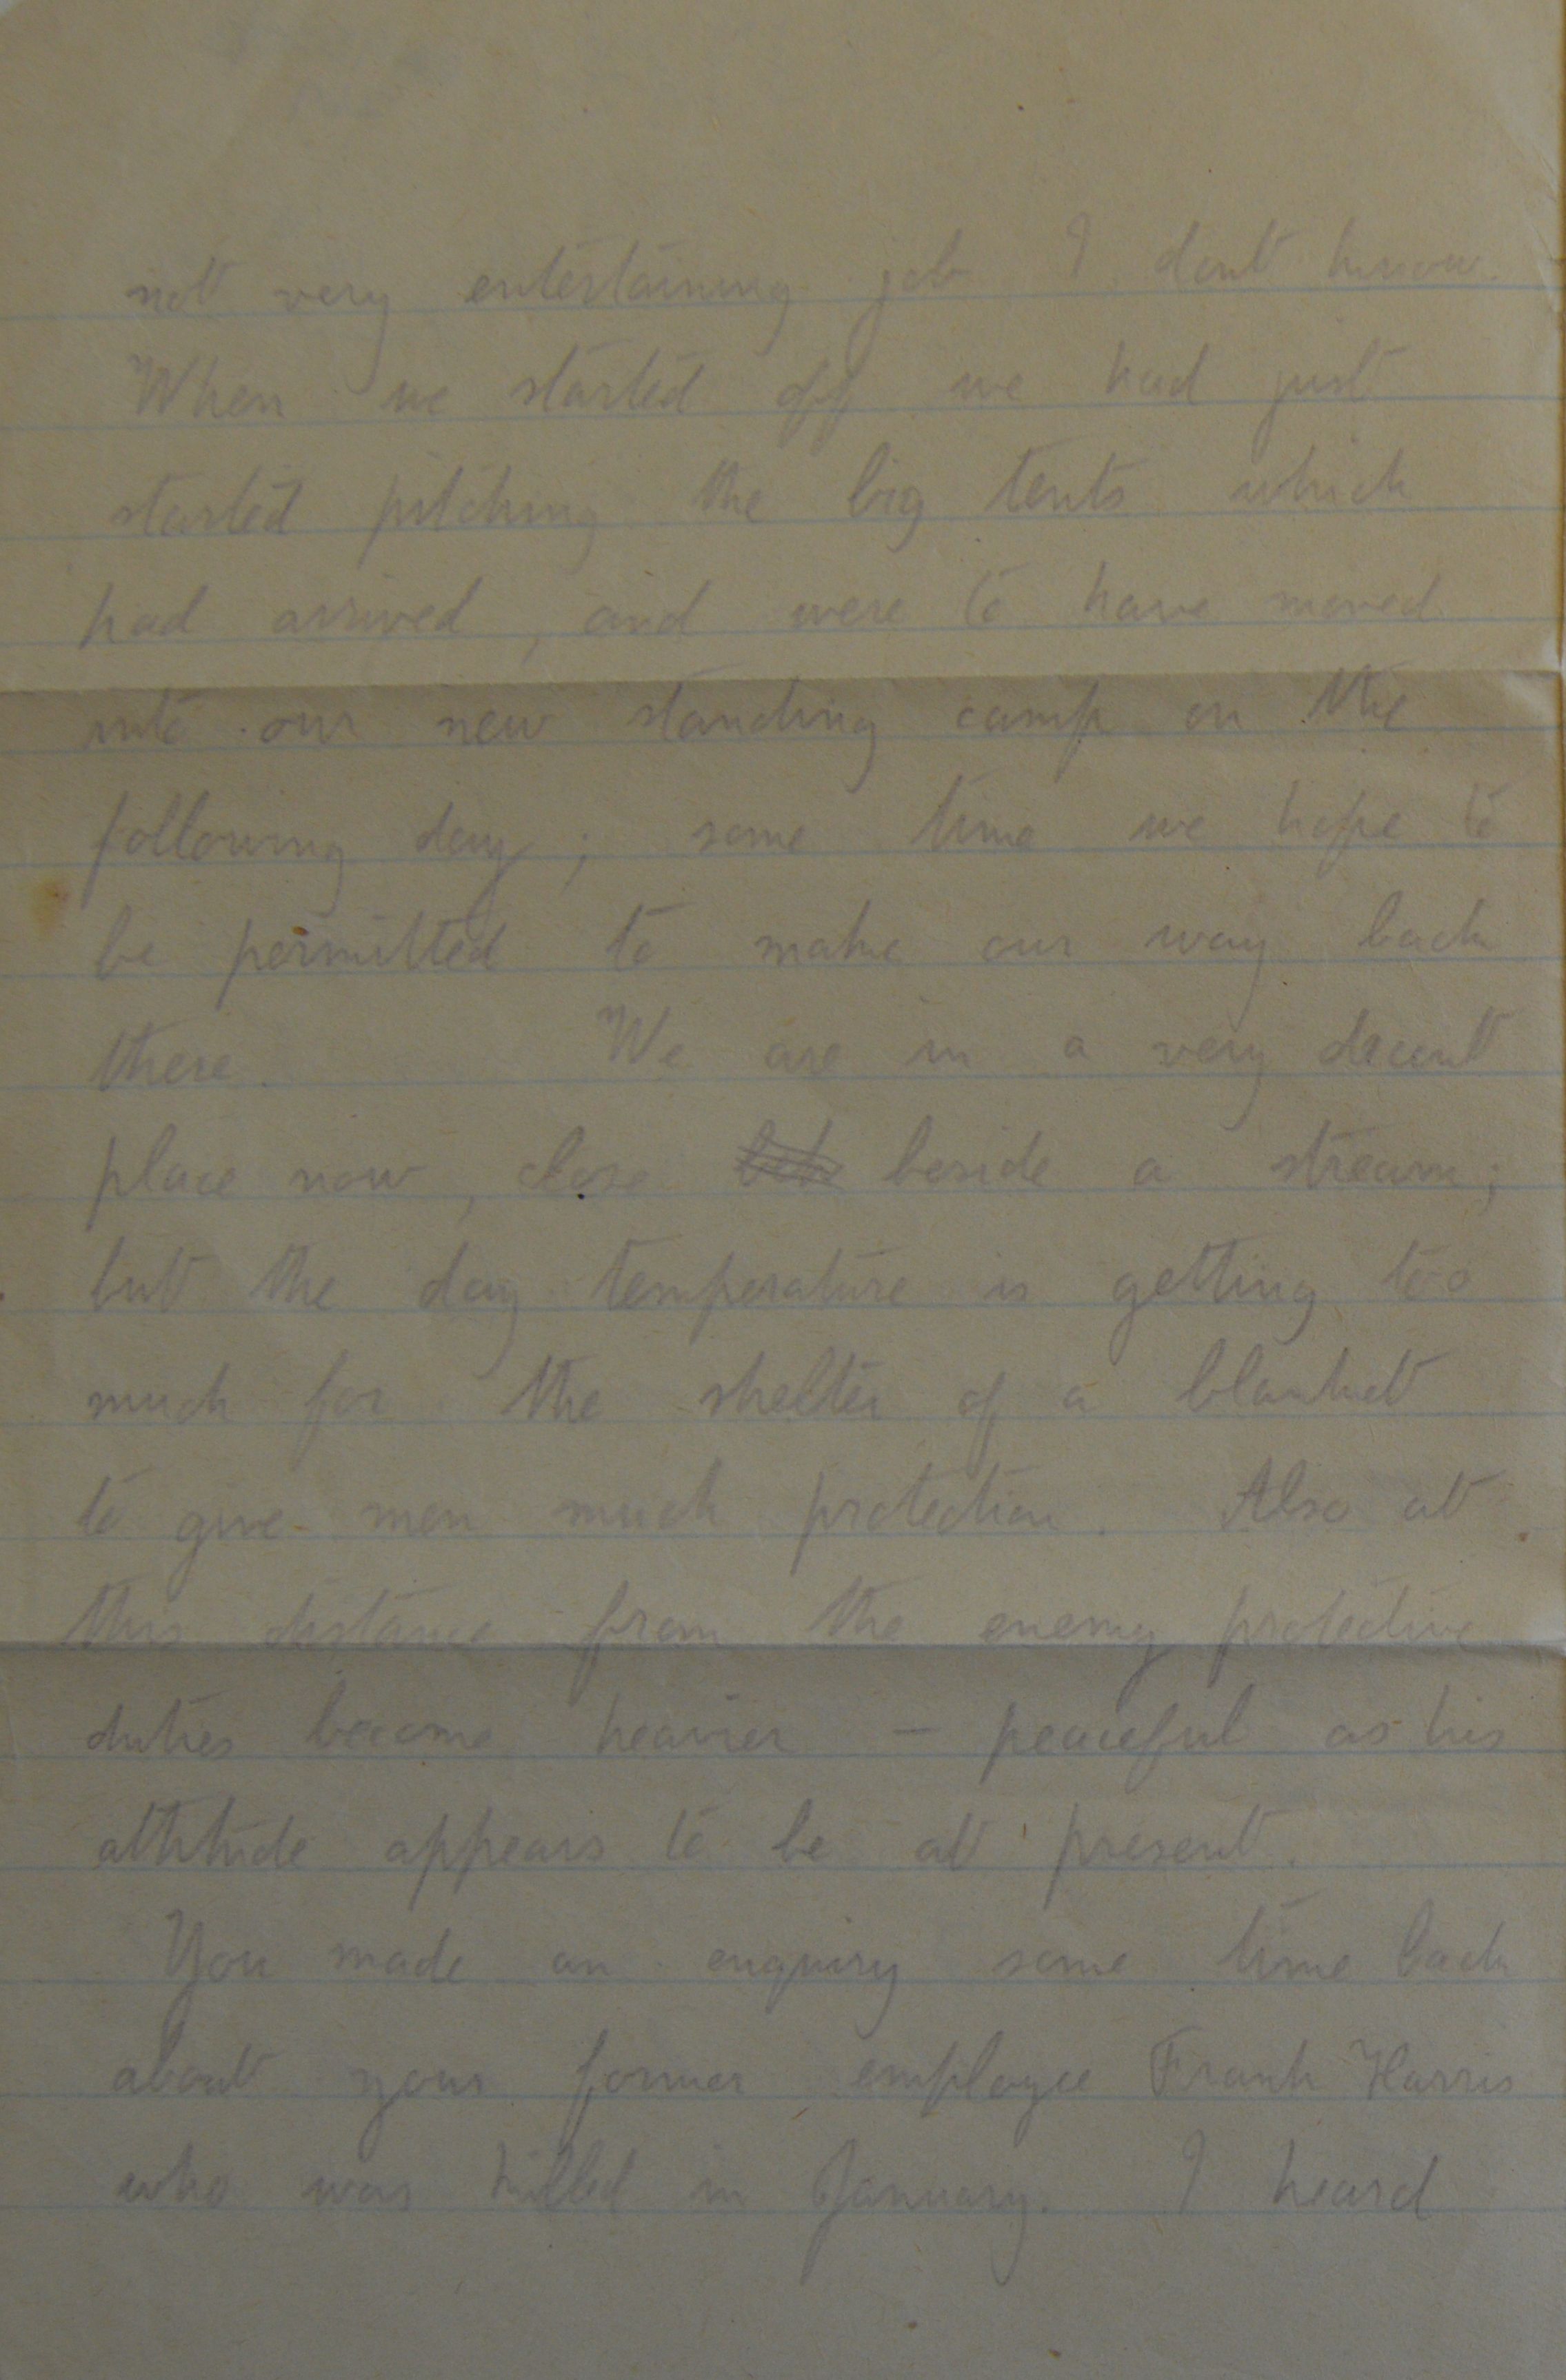 not very entertaining job I dont know.
When we started off we had just
started pitching the big tents which
had arrived, and were to have moved
into our new standing camp on the
following day; some time we hope to
be permitted to make our way back
there. We are in a very decent
place now, close beside a stream;
but the day temperature is getting too
much for the shelter of a blanket
to give men much protection. Also at
this distance from the enemy protective
duties become heavier – peaceful as his
attitude appears to be at present.
You made an enquiry some time back
about your former employee Frank Harris
who was killed in January. I heard